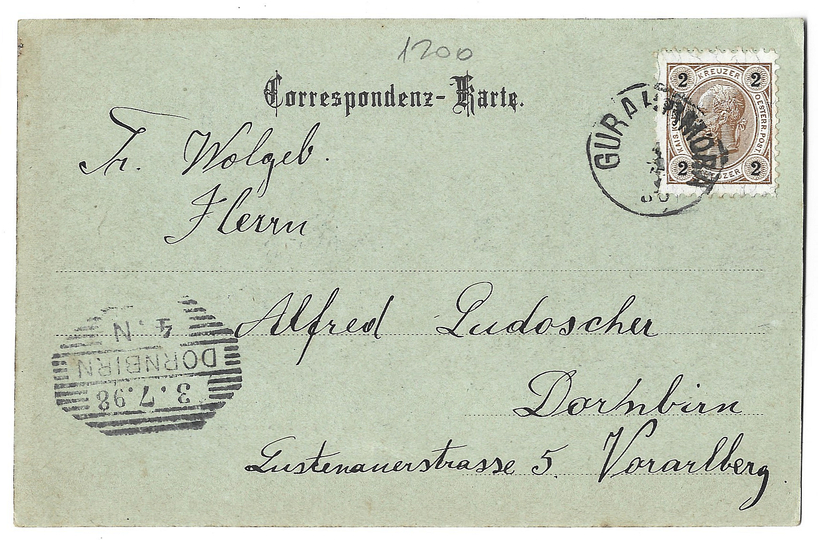 1200
Correspondenz-Karte.
Sr. Wolgeb.
Herrn
Alfred Ludoscher
Dornbirn
Lustenauerstrasse 5. Vorarlberg
2 KREUZER 2
KAIS. KÖN. OESTERR. POST.
2 KREUZER 2
GURAHUMORA
DORNBIRN
3.7.98
4.N